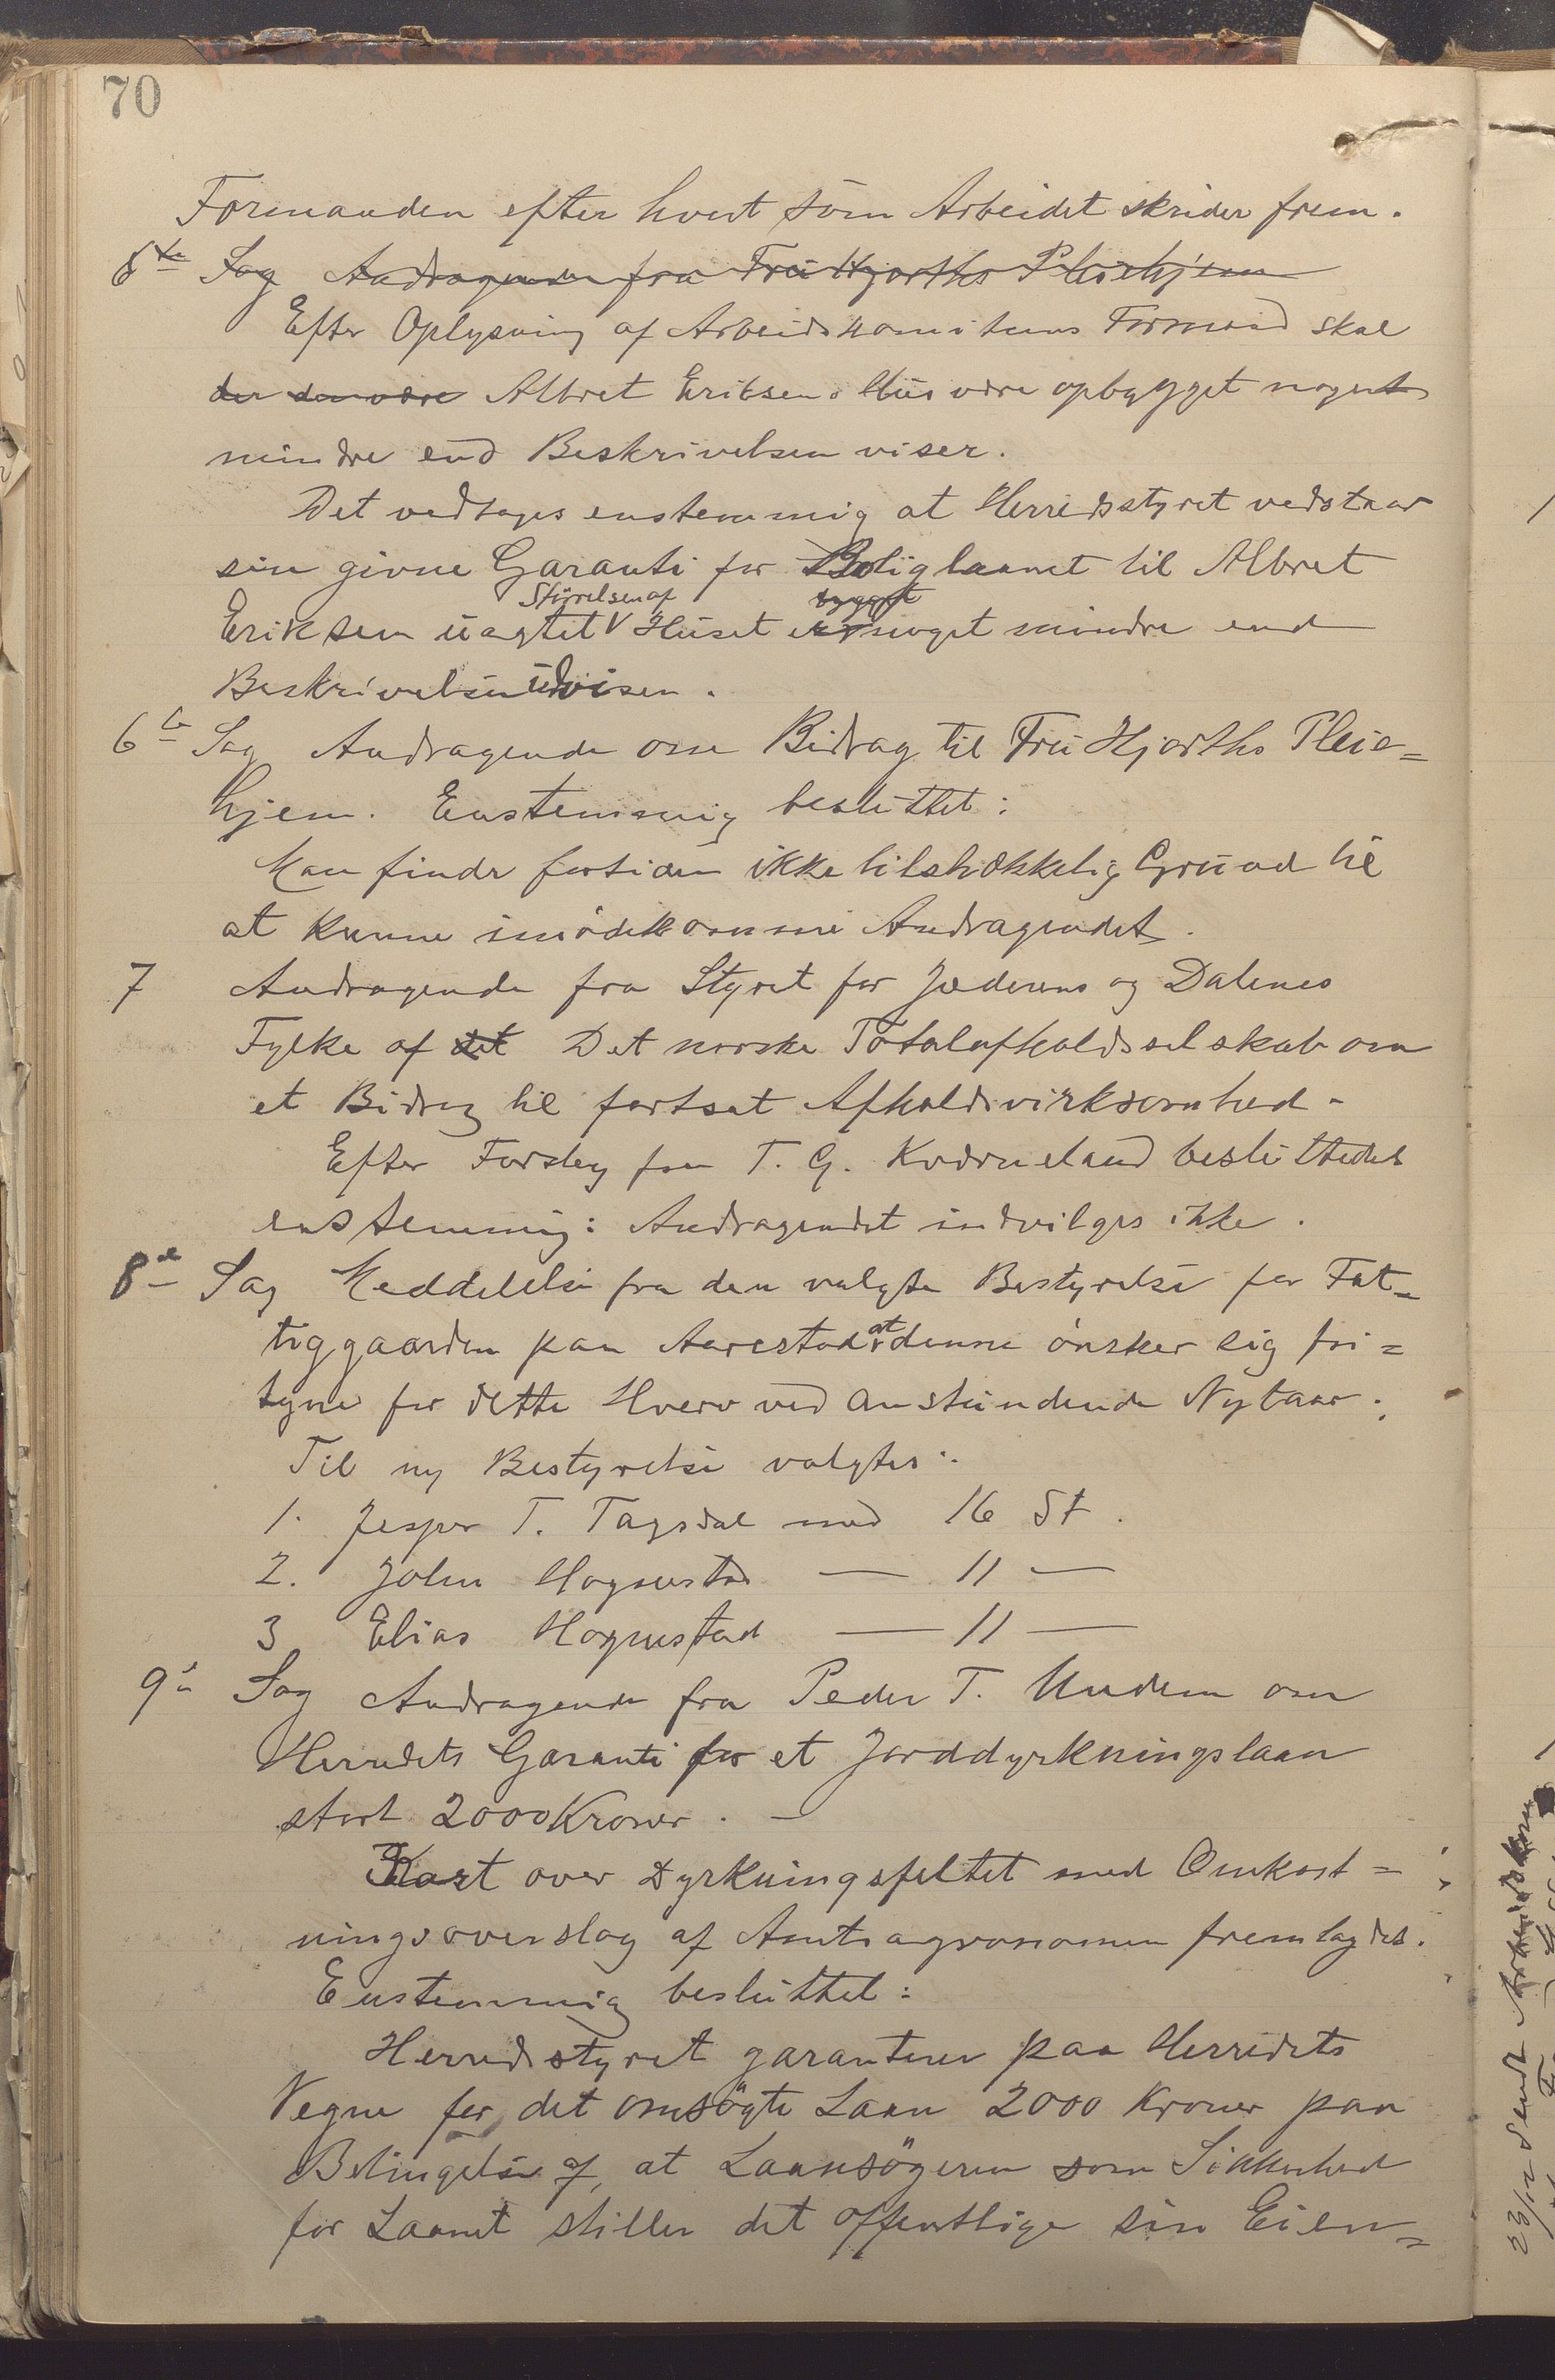 70
Formanden efter hvert som Arbeidet skrider frem.
6te Sag Andragende fra Fru Hjorths Pleiehjem
Efter Oplysning af Arbeidskomiteens Formand skal
der den være Albret Eriksens Hus være opbygget noget
mindre end Beskrivelsen viser.
Det vedtages enstemmig at Herredsstyret vedstaar
sin givne Garanti for Boliglaanet til Albret
Størrelsen af bygget
Eriksen uagtet V Huset er noget mindre end
Beskrivelsen udviser.
6te Sag Andragende om Bidrag til Fru Hjorths Pleie=
hjem. Enstemmig besluttet:
Man finder fortiden ikke tilstrækkelig Grund til
at kunne imødekomme Andragendet.
7 Andragende fra Styret for Jæderens og Dalenes
Fylke af det Det norske Totalafholdsselskab om
et Bidrag til fortsat Afholdsvirksomhed.
Efter Forslag fra T. G. Kværneland besluttedes
enstemmig: Andragendet indvilges ikke.
8de Sag Meddelelse fra den valgte Bestyrelse for Fat=
tiggaarden paa Aarestad at denne ønsker sig fri=
tagne for dette Hverv ved anstundende Nytaar.
Til ny Bestyrelse valgtes:
1. Jesper T. Tagsdal med 16 St.
2. John Hognestad — 11 —
3 Elias Hognestad — 11 —
9de Sag Andragende fra Peder T. Undem om
Herredets Garanti for et Jorddyrkningslaan
stort 2000 Kroner. —
Kart over Dyrkningsfeltet med Omkost=
ningsoverslag af Amtsagronomen fremlagdes.
Enstemmig besluttet:
Herredsstyret garanterer paa Herredets
Vegne for det omsøgte Laan 2000 Kroner paa
Betingelse af, at Laansøgeren som Sikkerhed
for Laanet stiller det offentlige sin Eien=
23/12 sendt